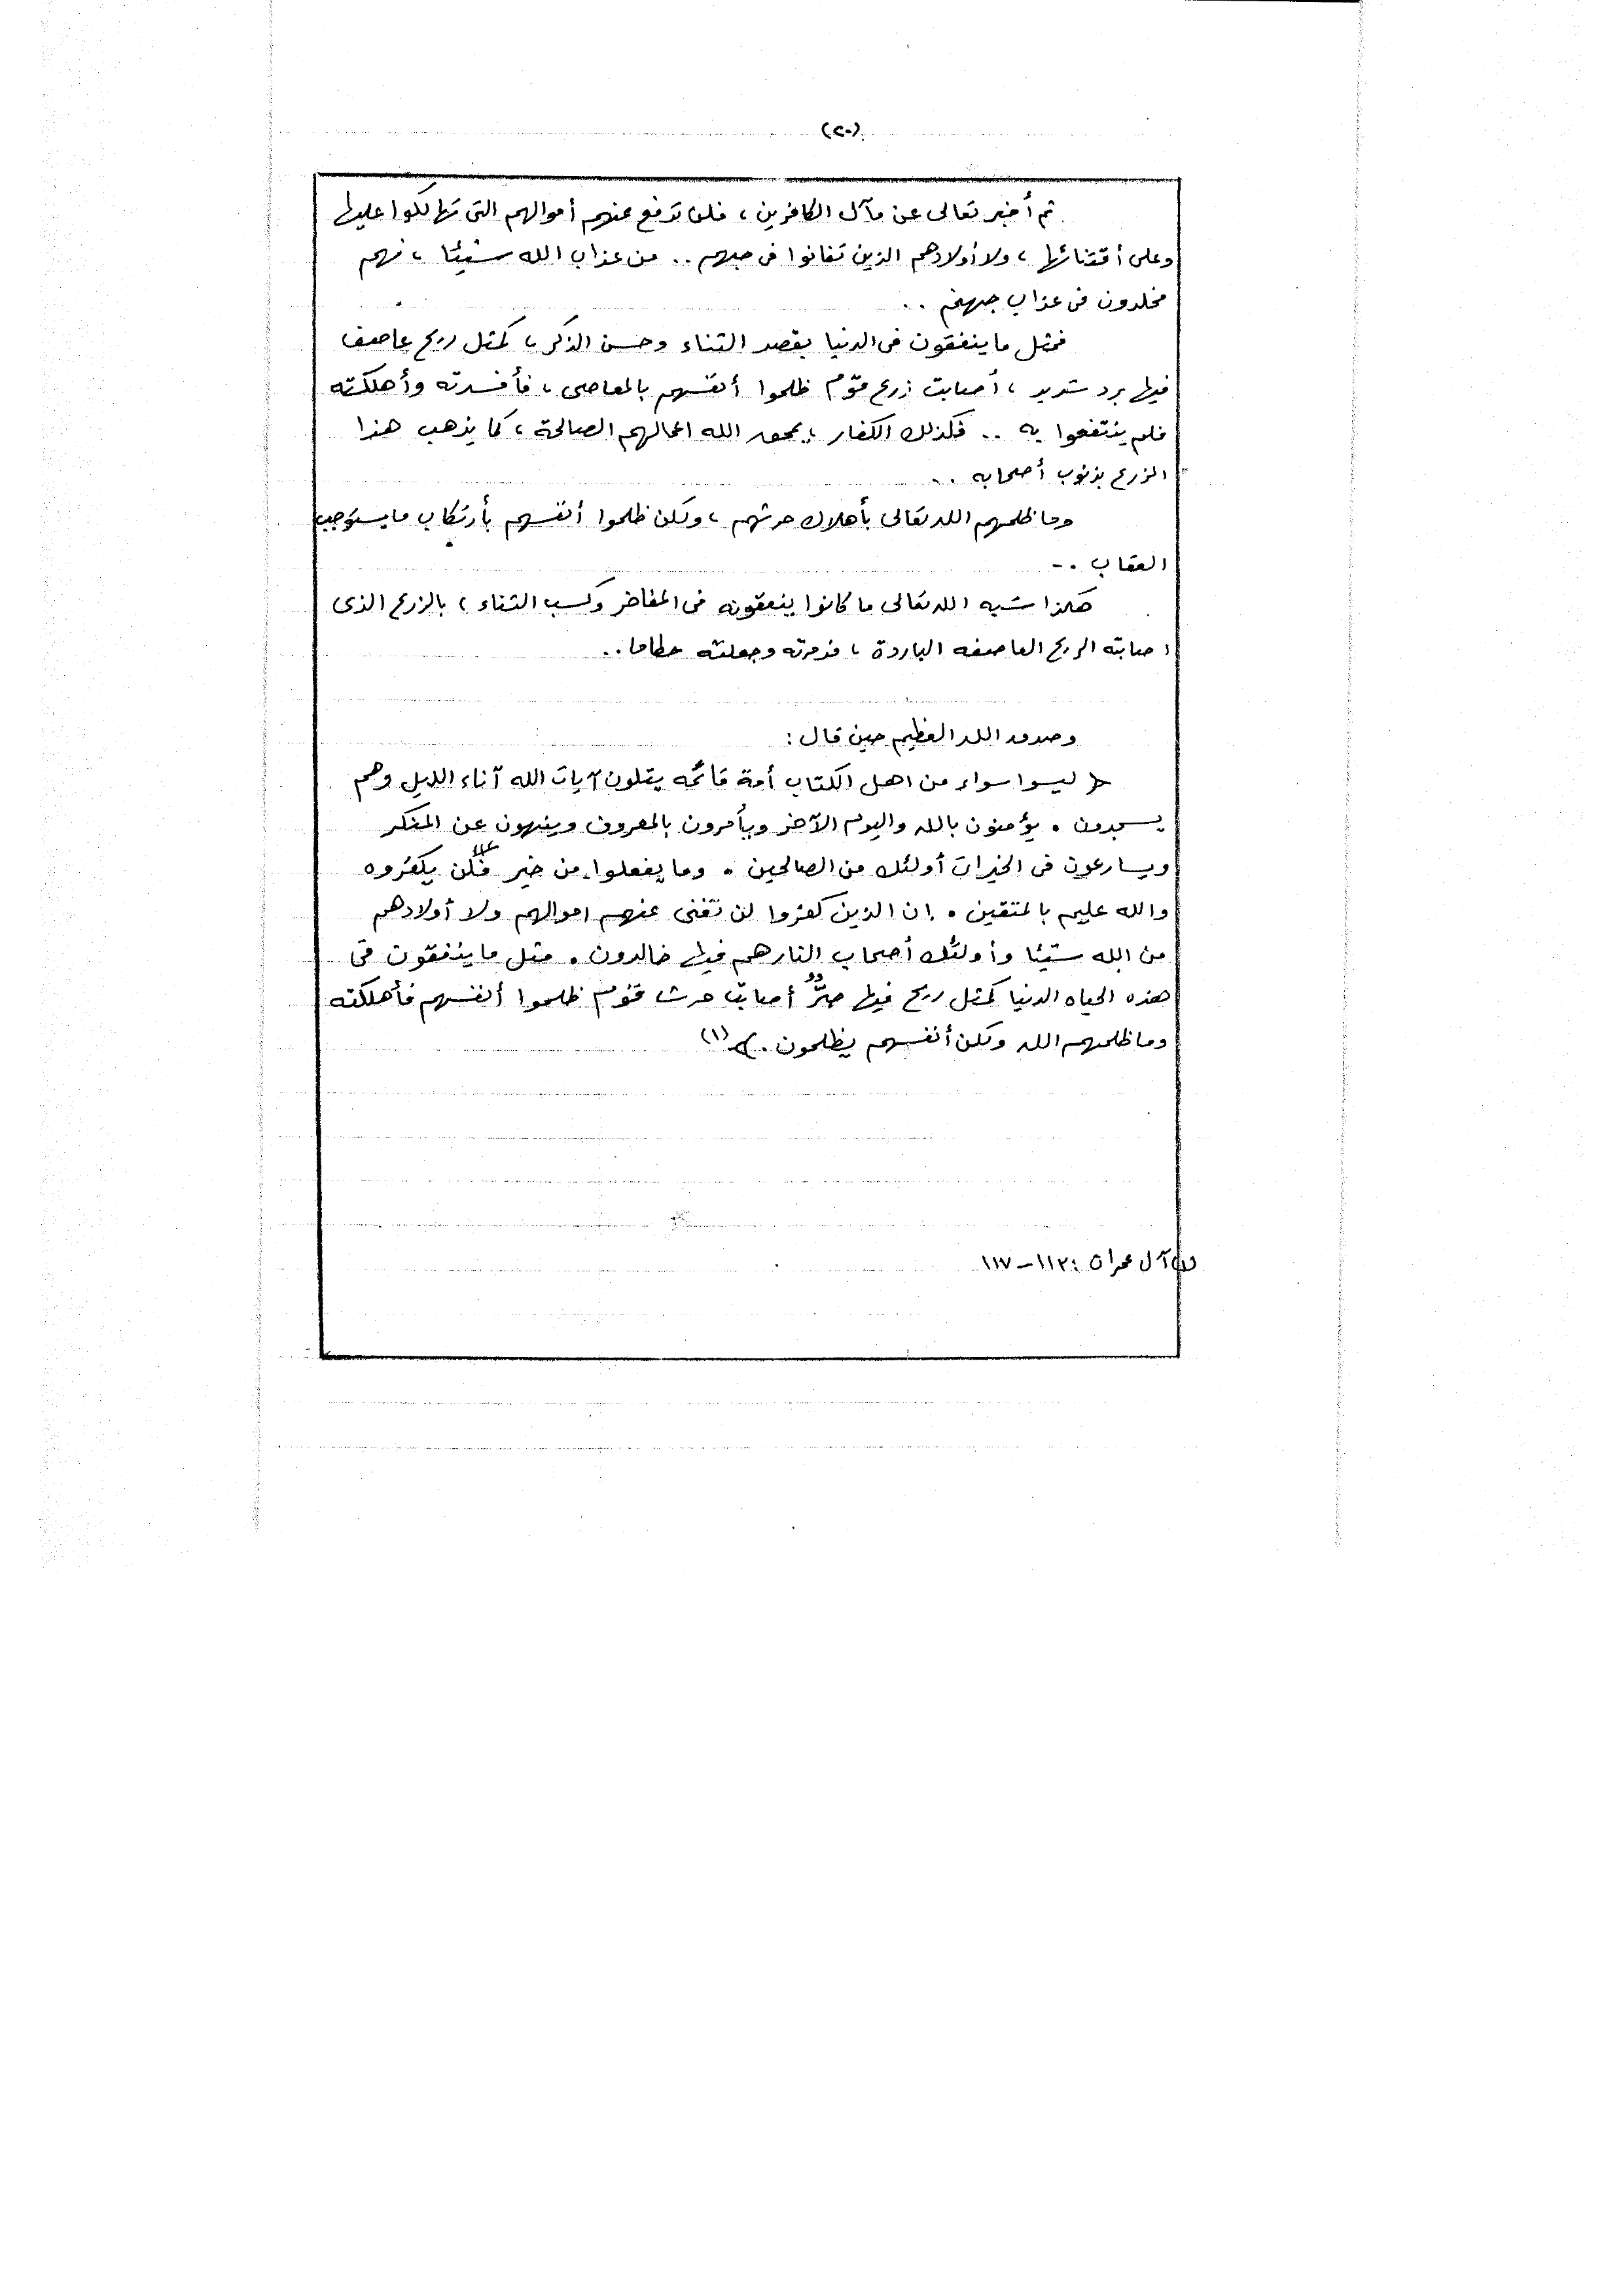 (٢٠)
ثم أخبر تعالى عن مآل الكافرين ، فلن تدفع عنهم أموالهم التى تهالكوا عليها
وعلى أقتنائها ، ولا أولادهم الذين تفانوا فى حبهم .. من عذاب الله شيئا ، فهم
مخلدون فى عذاب جهنم ..
فمثل ما ينفقون فى الدنيا بقصد الثناء وحسن الذكر ، كمثل ريح عاصف
فيها برد شديد ، أصابت زرع قوم ظلموا أنفسهم بالمعاصى ، فأفسدته وأهلكته
فلم ينتفعوا به .. فكذلك الكفار ، يمحق الله اعمالهم الصالحة ، كما يذهب هذا
الزرع بذنوب أصحابه ..
وما ظلمهم الله تعالى بأهلاك حرثهم ، ولكن ظلموا أنفسهم بأرتكاب ما يستوجب
العقاب ..
هكذا شبه الله تعالى ما كانوا ينفقونه فى المفاخر وكسب الثناء ، بالزرع الذى
اصابته الريح العاصفه الباردة ، فدمرته وجعلته حطاما ..
وصدق الله العظيم حين قال :
﴿ ليسوا سواء من اهل الكتاب أمة قائمه يتلون آيات الله آناء الليل وهم
يسجدون . يؤمنون بالله واليوم الآخر ويأمرون بالمعروف وينهون عن المنكر
ويسارعون فى الخيرات أولئك من الصالحين . وما يفعلوا من خير فلن يكفروه
والله عليم بالمتقين . إن الذين كفروا لن تغنى عنهم اموالهم ولا أولادهم
من الله شيئا وأولئك أصحاب النار هم فيها خالدون . مثل ما ينفقون فى
هذه الحياه الدنيا كمثل ريح فيها صرٌّ أصابت حرث قوم ظلموا أنفسهم فأهلكته
وما ظلمهم الله ولكن أنفسهم يظلمون . ﴾ (١)
(١) آل عمران : ١١٣ – ١١٧